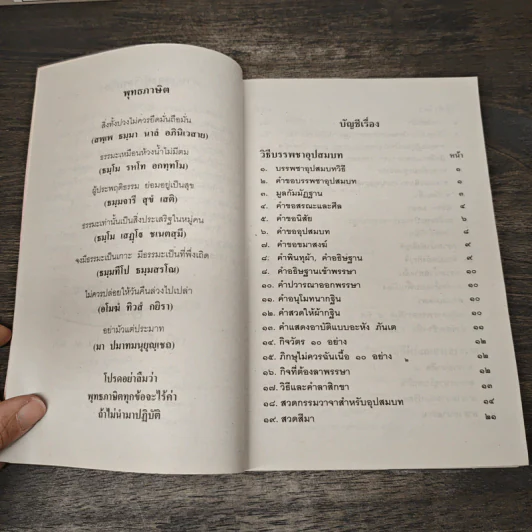 พุทธภาษิต
สิ่งทั้งปวงไม่ควรยึดมั่นถือมั่น
(สพฺเพ ธมฺมา นาลํ อภินิเวสาย)
ธรรมะเหมือนห้วงน้ำไม่มีตม
(ธมฺโม รหโท อกทฺทโม)
ผู้ประพฤติธรรม ย่อมอยู่เป็นสุข
(ธมฺมจารี สุขํ เสติ)
ธรรมะเท่านั้นเป็นสิ่งประเสริฐในหมู่คน
(ธมฺโม เสฏฺโฐ ชเนตสฺมึ)
จงมีธรรมะเป็นเกาะ มีธรรมะเป็นที่พึ่งเถิด
(ธมฺมทีโป ธมฺมสรโณ)
ไม่ควรปล่อยให้วันคืนล่วงไปเปล่า
(อโมฆํ ทิวสํ กยิรา)
อย่ามัวแต่ประมาท
(มา ปมาทมนุยุญฺเชถ)
โปรดอย่าลืมว่า
พุทธภาษิตทุกข้อจะไร้ค่า
ถ้าไม่นำมาปฏิบัติ
บัญชีเรื่อง
วิธีบรรพชาอุปสมบท หน้า
๑. บรรพชาอุปสมบทวิธี ๑
๒. คำขอบรรพชาอุปสมบท ๑
๓. มูลกัมมัฏฐาน ๓
๔. คำขอสรณะและศีล ๔
๕. คำขอนิสัย ๖
๖. คำขออุปสมบท ๘
๗. คำขอขมาสงฆ์ ๙
๘. คำพินทุผ้า, คำอธิษฐาน ๙
๙. คำอธิษฐานเข้าพรรษา ๑๐
๑๐. คำปวารณาออกพรรษา ๑๐
๑๑. คำอนุโมทนากฐิน ๑๐
๑๒. คำสวดให้ผ้ากฐิน ๑๐
๑๓. คำแสดงอาบัติแบบอะหัง ภันเต ๑๑
๑๔. กิจวัตร ๑๐ อย่าง ๑๒
๑๕. ภิกษุไม่ควรฉันเนื้อ ๑๐ อย่าง ๑๒
๑๖. กิจที่ต้องลาพรรษา ๑๒
๑๗. วิธีและคำลาสิกขา ๑๓
๑๘. สวดกรรมวาจาสำหรับอุปสมบท ๑๔
๑๙. สวดสีมา ๒๑